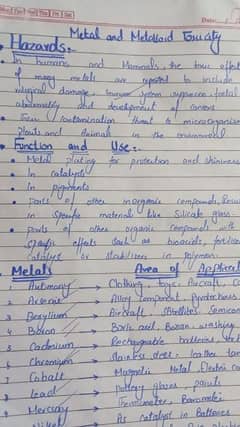 Metal and Metalloid Toxicity
Hazards:-
In humans and Mammals, the toxic effect
of many metals are reported to include
physical damage, immune system suppression, foetal
abnormality and development of cancer
contamination threat to microorganism
plants and Animals in the environment
Function and Use:-
Metal plating for protection and shininess
In catalysts
In pigments
parts of other inorganic compounds,
in specific materials like Silicate glass
parts of other organic compounds with
specific effects such as biocides,
catalyst or stabilizers in polymers
Metals Area of
1 Antimony Clothing, toys, Aircraft,
2 Arsenic Alloy component,
3 Beryllium Aircraft, Satellites,
4 Boron Boric acid, Boron
5 Cadmium Rechargeable batteries,
6 Chromium Stainless steel, leather
7 Cobalt Magnetic Metal, Electric
8 Lead Pottery glass, paints
9 Mercury Thermometer, Barometer
Nickel As catalyst in Batteries